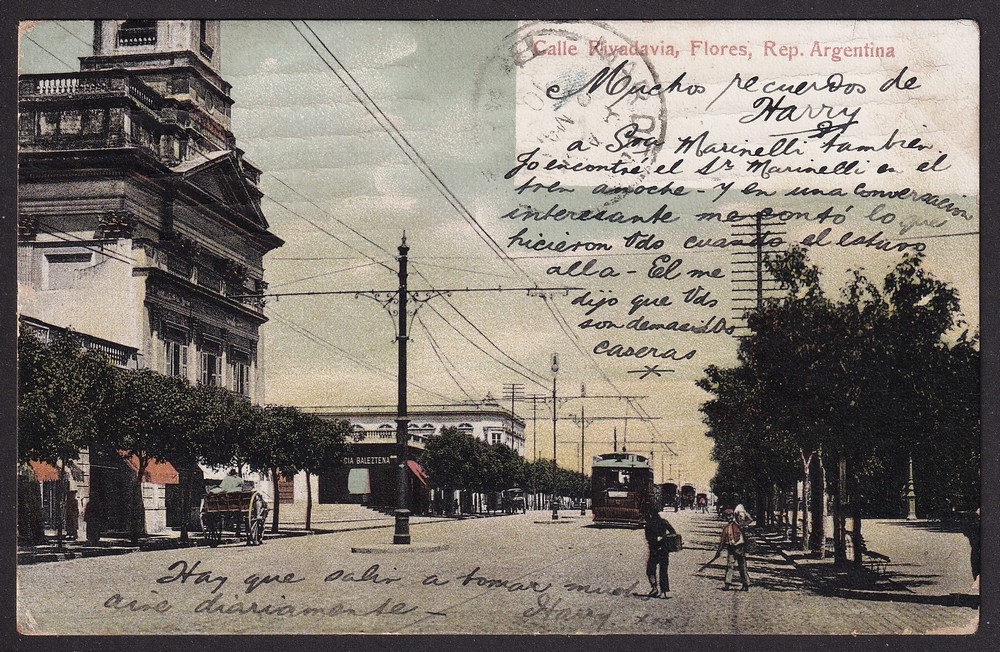 Calle Rivadavia, Flores, Rep. Argentina
Muchos recuerdos de
Harry
a Sra Marinelli tambien.
Yo encontré el Sr Marinelli en el
tren anoche - y en una conversacion
interesante me contó lo que
hicieron Vds cuando el estuvo
alla - El me
dijo que Vds
son demasiados
caseras
CIA BALEZTENA
Hay que salir a tomar mucho
aire diariamente -
Harry xxx